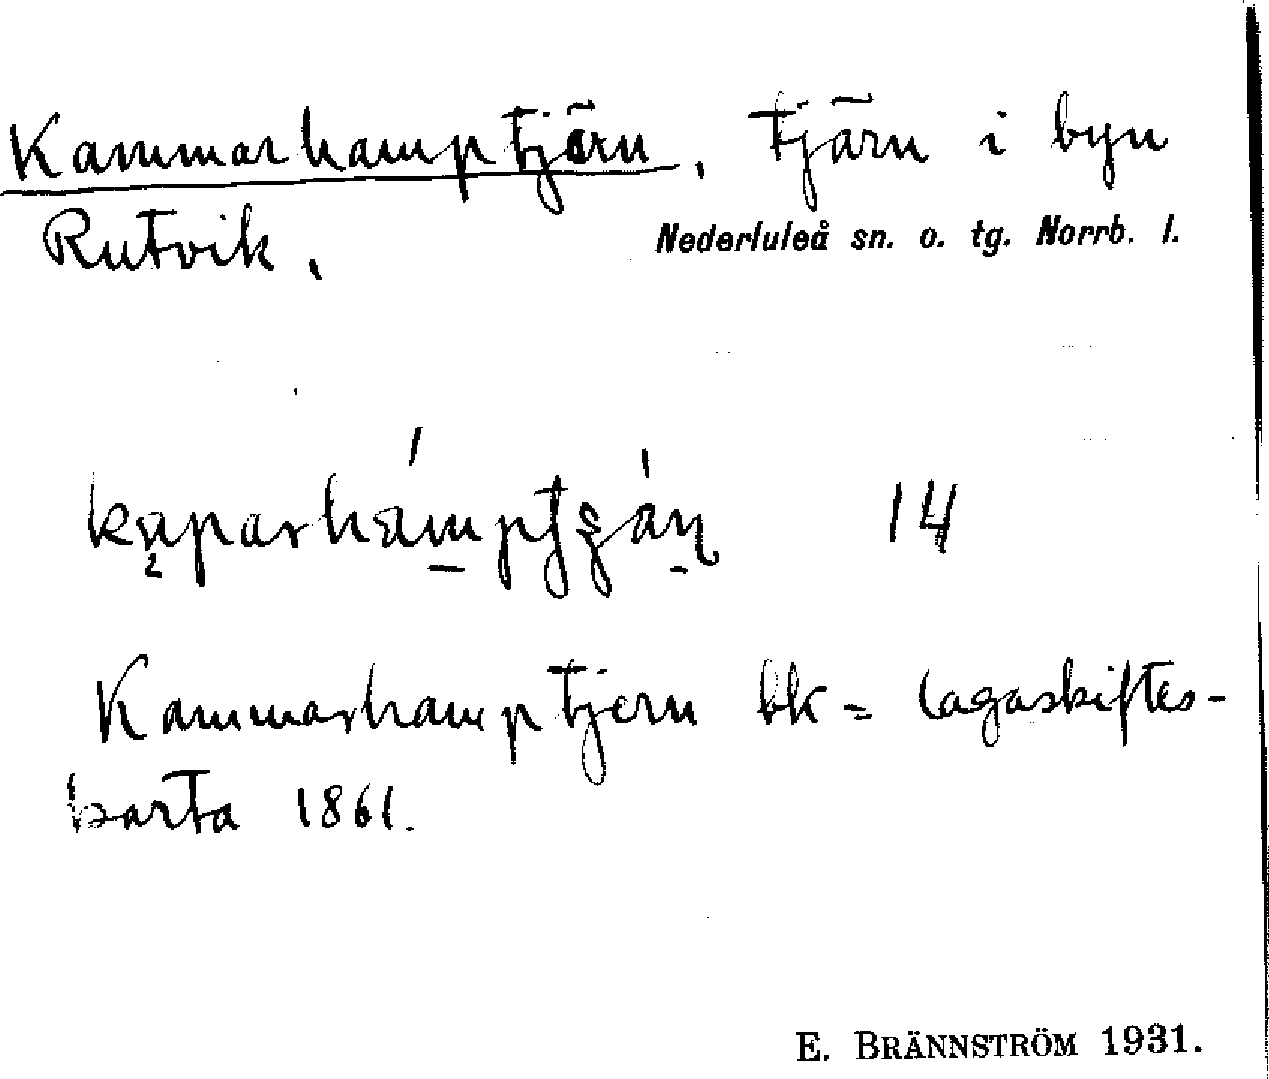 Kammarhamptjärn, tjärn i byn
Rutvik.
Nederluleå sn. o. tg. Norrb. l.
14
Kammarhamptjern bk = lagaskiftes-
karta 1861.
E. BRÄNNSTRÖM 1931.